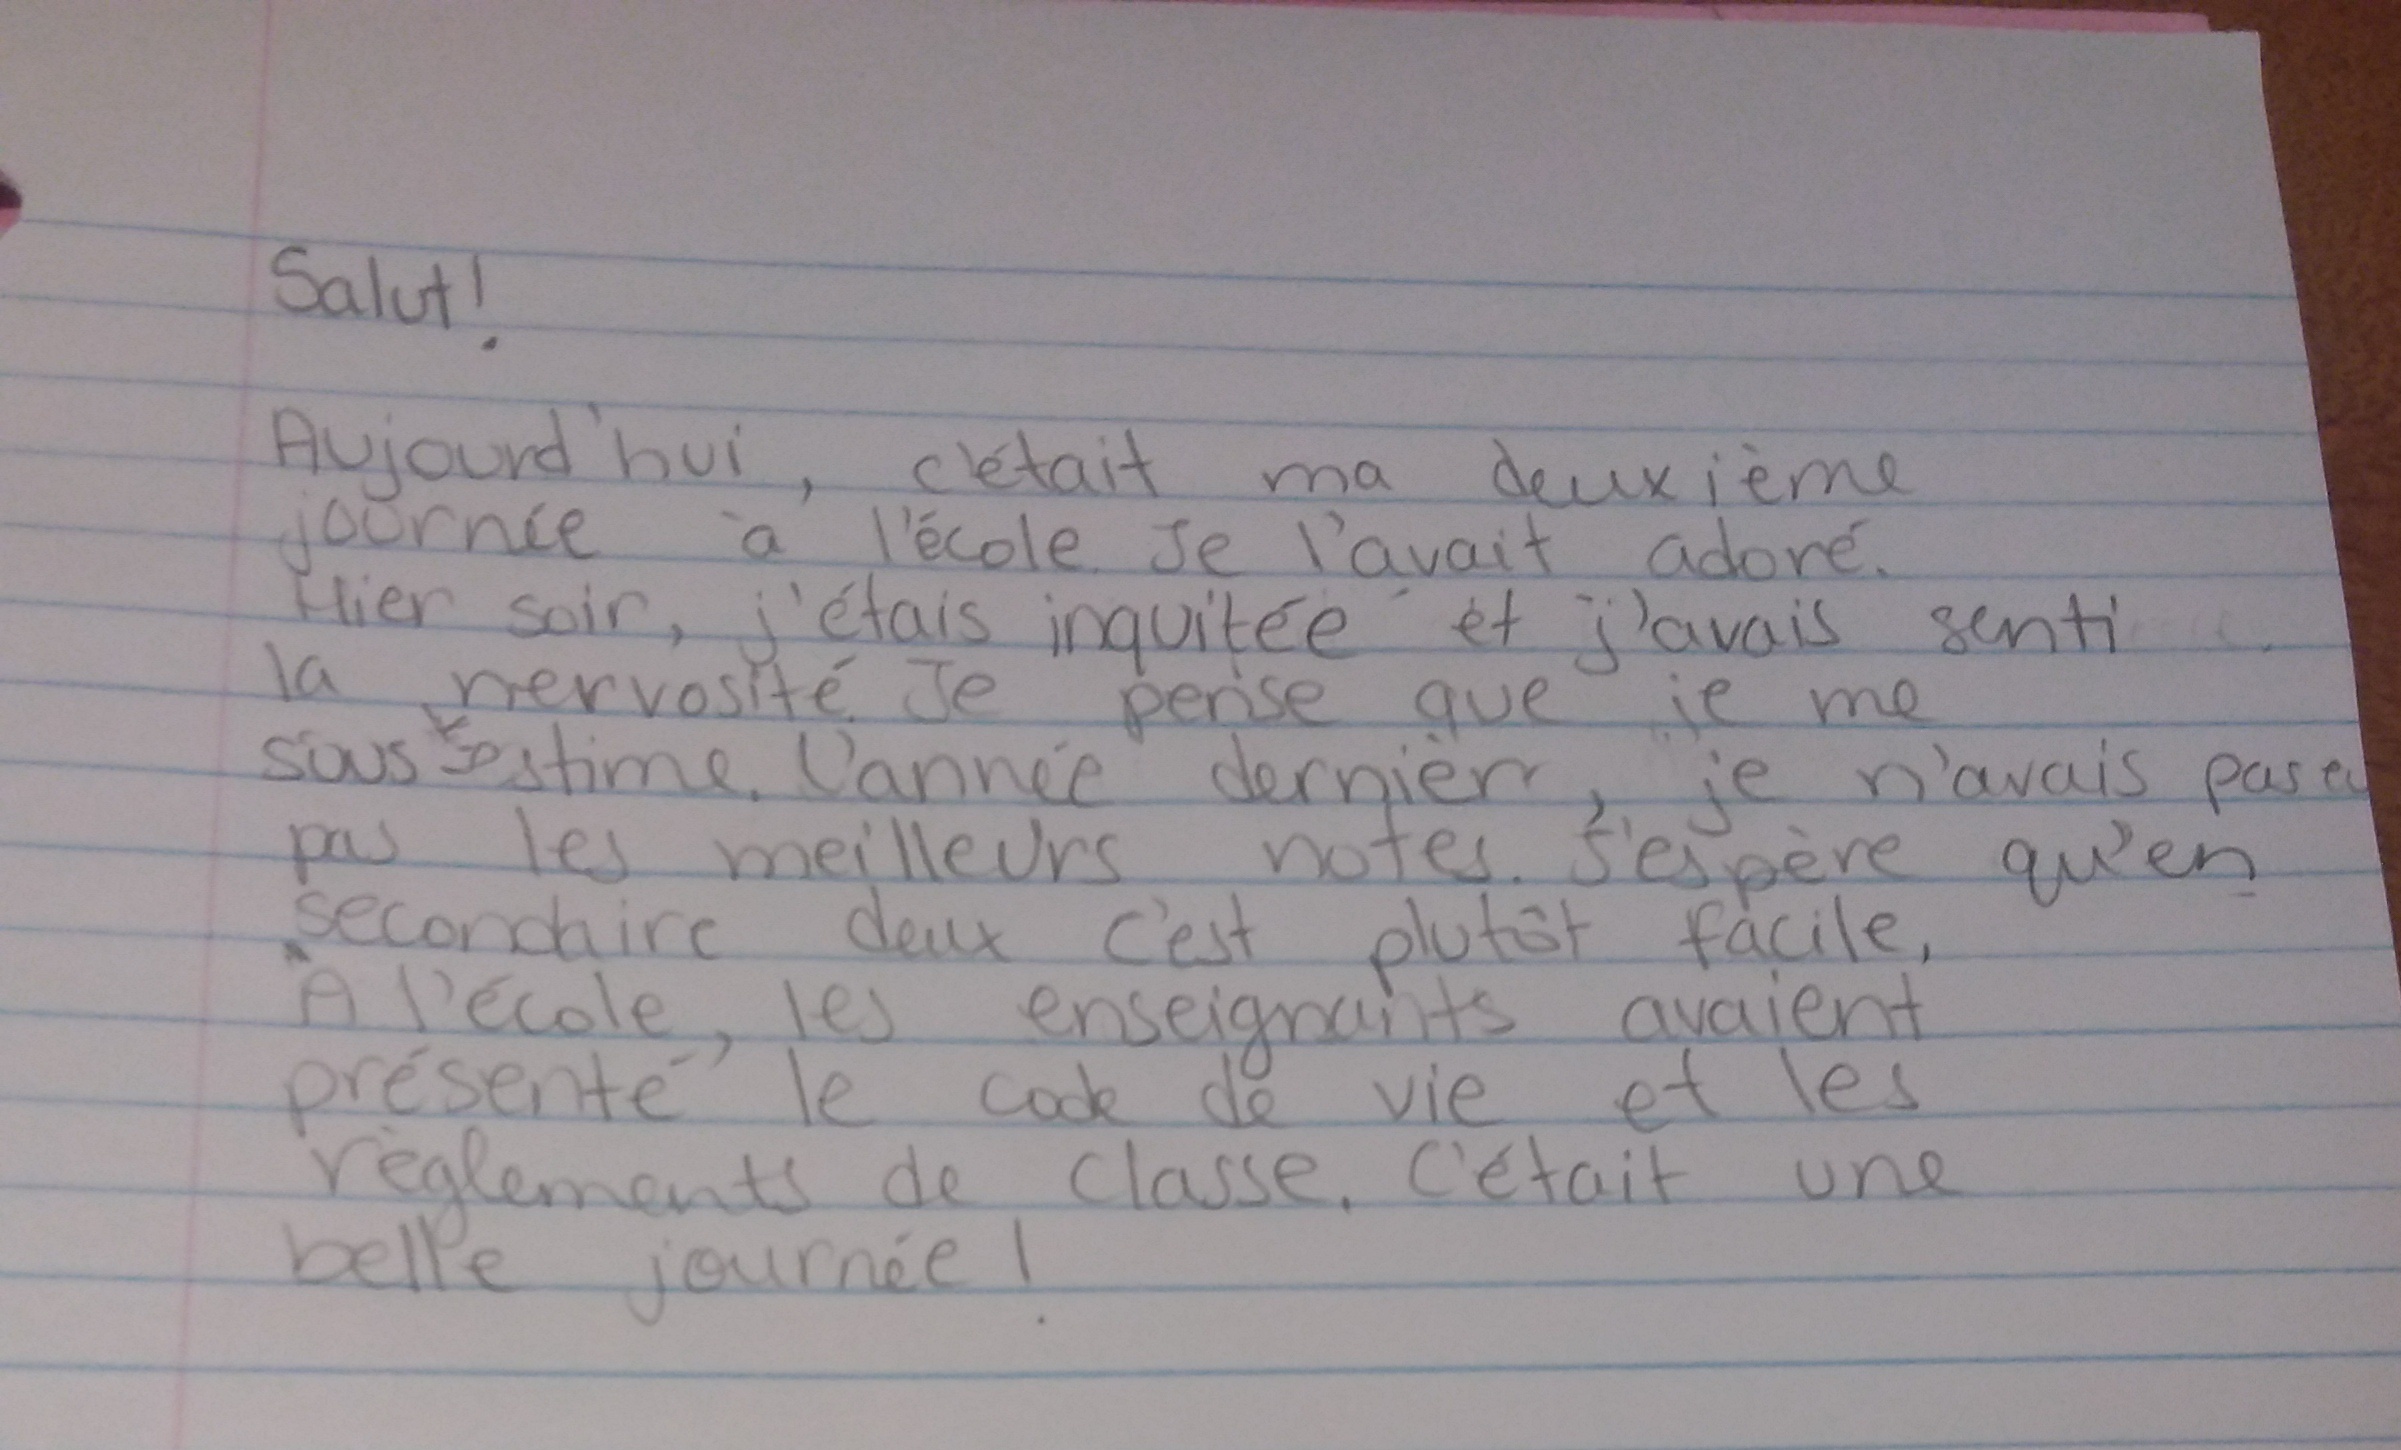 Salut!
Aujourd'hui, c'était ma deuxième
journée à l'école. Je l'avait adoré.
Hier soir, j'étais inquitée et j'avais senti
la nervosité. Je pense que je me
sous estime. L'année dernièr, je n'avais pas eu
pas les meilleurs notes. J'espère qu'en
secondaire deux c'est plutôt facile,
À l'école, les enseignants avaient
présenté le code de vie et les
règlements de classe. C'était une
belle journée!